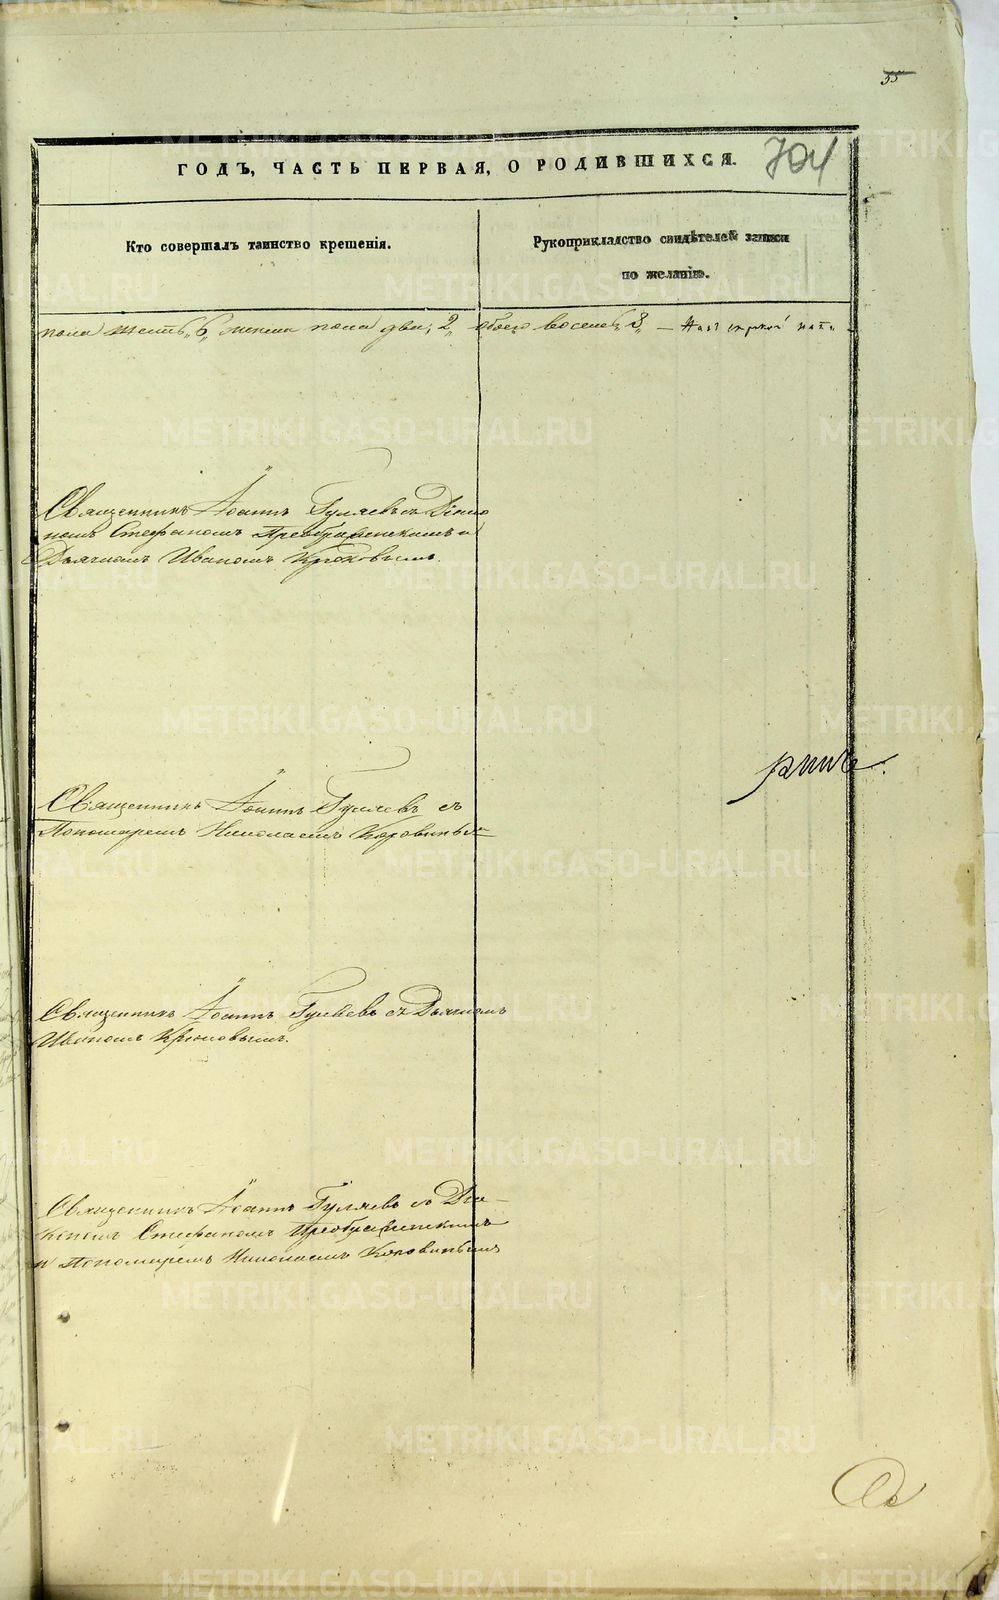 55
ГОДЪ, ЧАСТЬ ПЕРВАЯ, О РОДИВШИХСЯ.
704
Кто совершалъ таинство крещенія.
Рукоприкладство свидѣтелей записи
по желанію.
пола шесть „6„ женска пола два, 2„ обоего восемь „8„ —
Священникъ Іоаннъ Гуляевъ съ Діако
номъ Стефаномъ Преображенскимъ и
Дьячкомъ Иваномъ Крюковымъ.
Священникъ Іоаннъ Гуляевъ съ
Пономаремъ Николаемъ Коровинымъ
рши
Священникъ Іоаннъ Гуляевъ съ Дьячкомъ
Иваномъ Крюковымъ.
Священникъ Іоаннъ Гуляевъ съ Діа-
кономъ Стефаномъ Преображенскимъ
и Пономаремъ Николаемъ Коровинымъ
METRIKI.GASO-URAL.RU